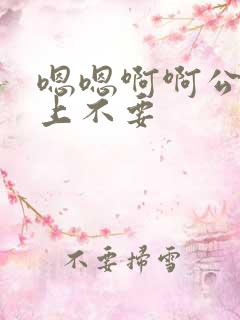 嗯嗯啊啊公
上不要
不要掃雪